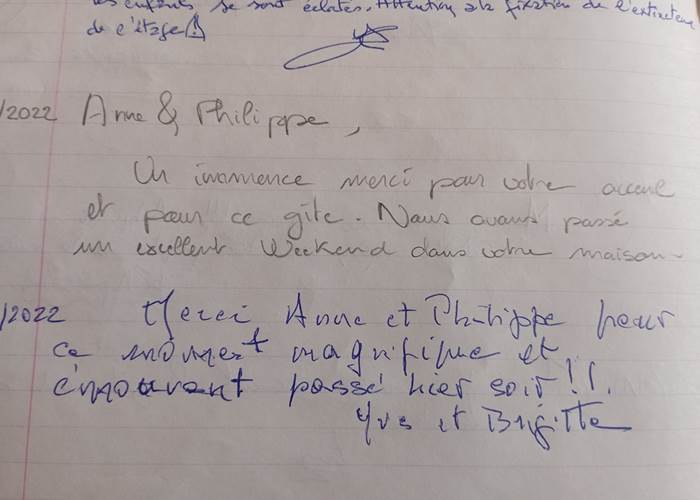 les enfants se sont éclatés. Attention à la fixation de l'extincteur
de l'étage(!)
/2022 Anne & Philippe,
Un immence merci pour votre accueil
et pour ce gîte. Nous avons passé
un excellent Weekend dans votre maison.
/2022 Merci Anne et Philippe pour
ce moment magnifique et
émouvant passé hier soir!!.
Yves et Brigitte